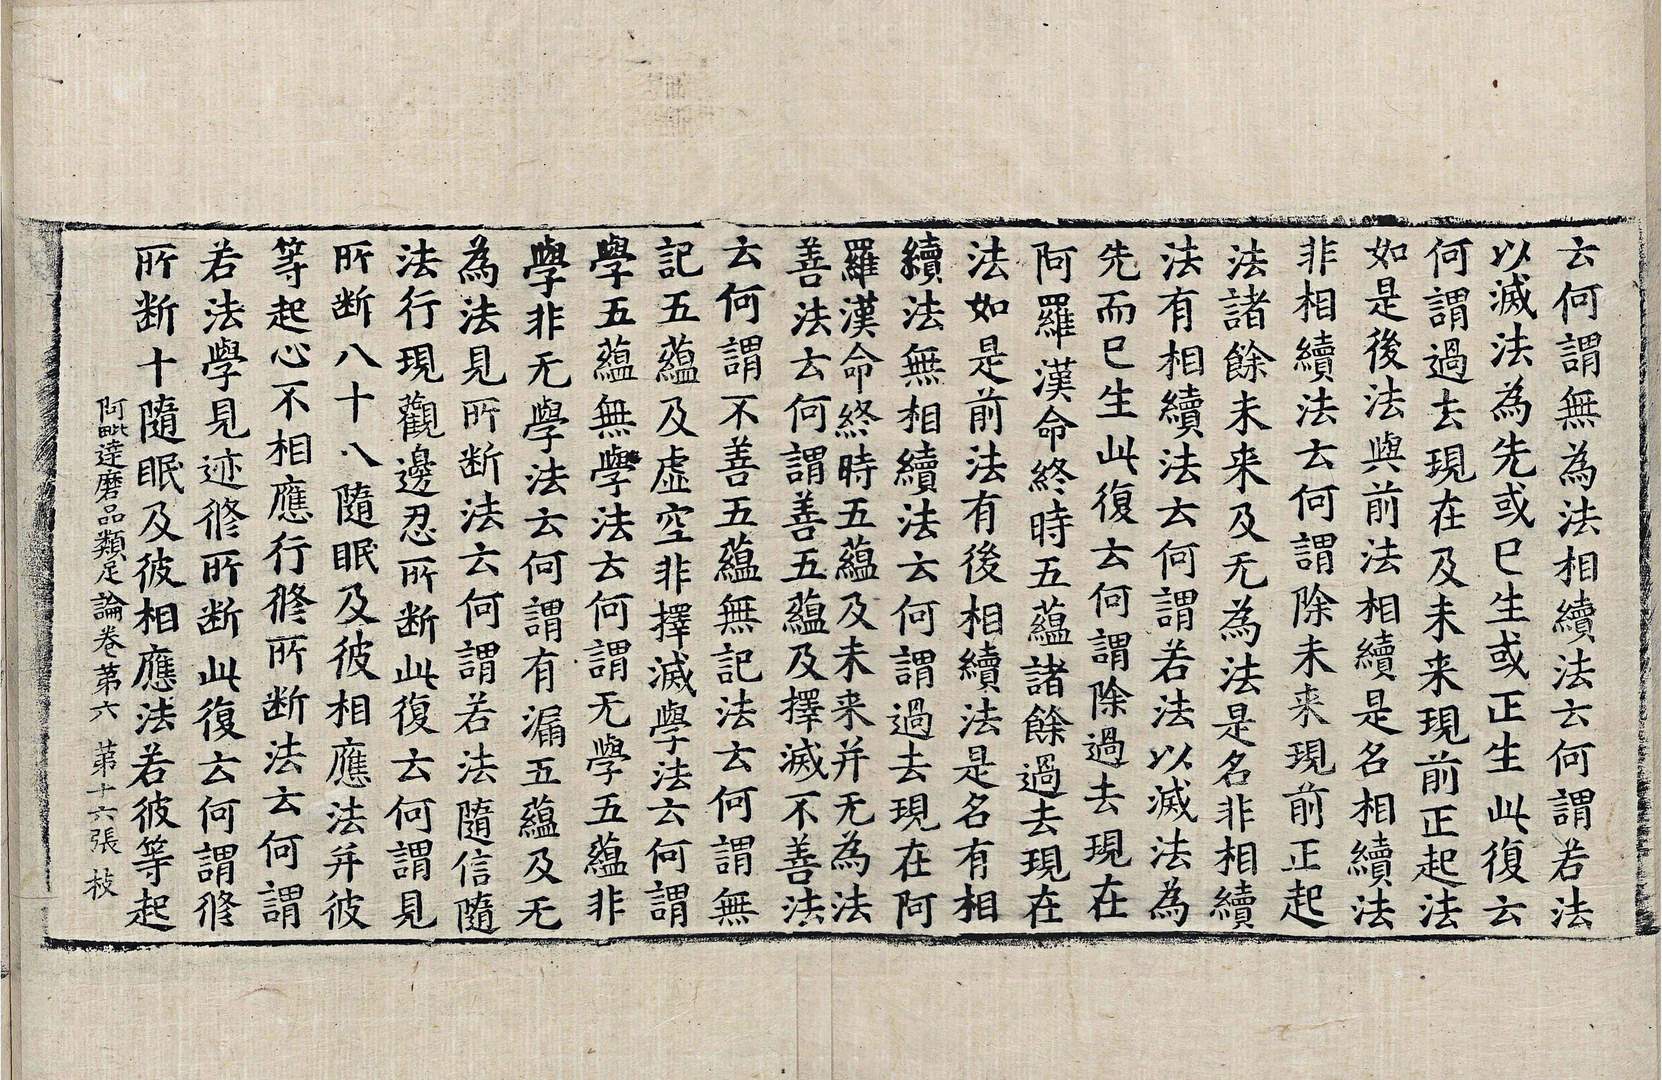 云何謂無為法相續法云何謂若法
以滅法為先或已生或正生此復云
何謂過去現在及未来現前正起法
如是後法與前法相續是名相續法
非相續法云何謂除未来現前正起
法諸餘未来及无為法是名非相續
法有相續法云何謂若法以滅法為
先而已生此復云何謂除過去現在
阿羅漢命終時五蘊諸餘過去現在
法如是前法有後相續法是名有相
續法無相續法云何謂過去現在阿
羅漢命終時五蘊及未来并无為法
善法云何謂善五蘊及擇滅不善法
云何謂不善五蘊無記法云何謂無
記五蘊及虛空非擇滅學法云何謂
學五蘊無學法云何謂无學五蘊非
學非无學法云何謂有漏五蘊及无
為法見所斷法云何謂若法隨信隨
法行現觀邊忍所斷此復云何謂見
所斷八十八隨眠及彼相應法并彼
等起心不相應行修所斷法云何謂
若法學見迹修所斷此復云何謂修
所斷十隨眠及彼相應法若彼等起
阿毗達磨品類足論卷第六 第十六張 枝